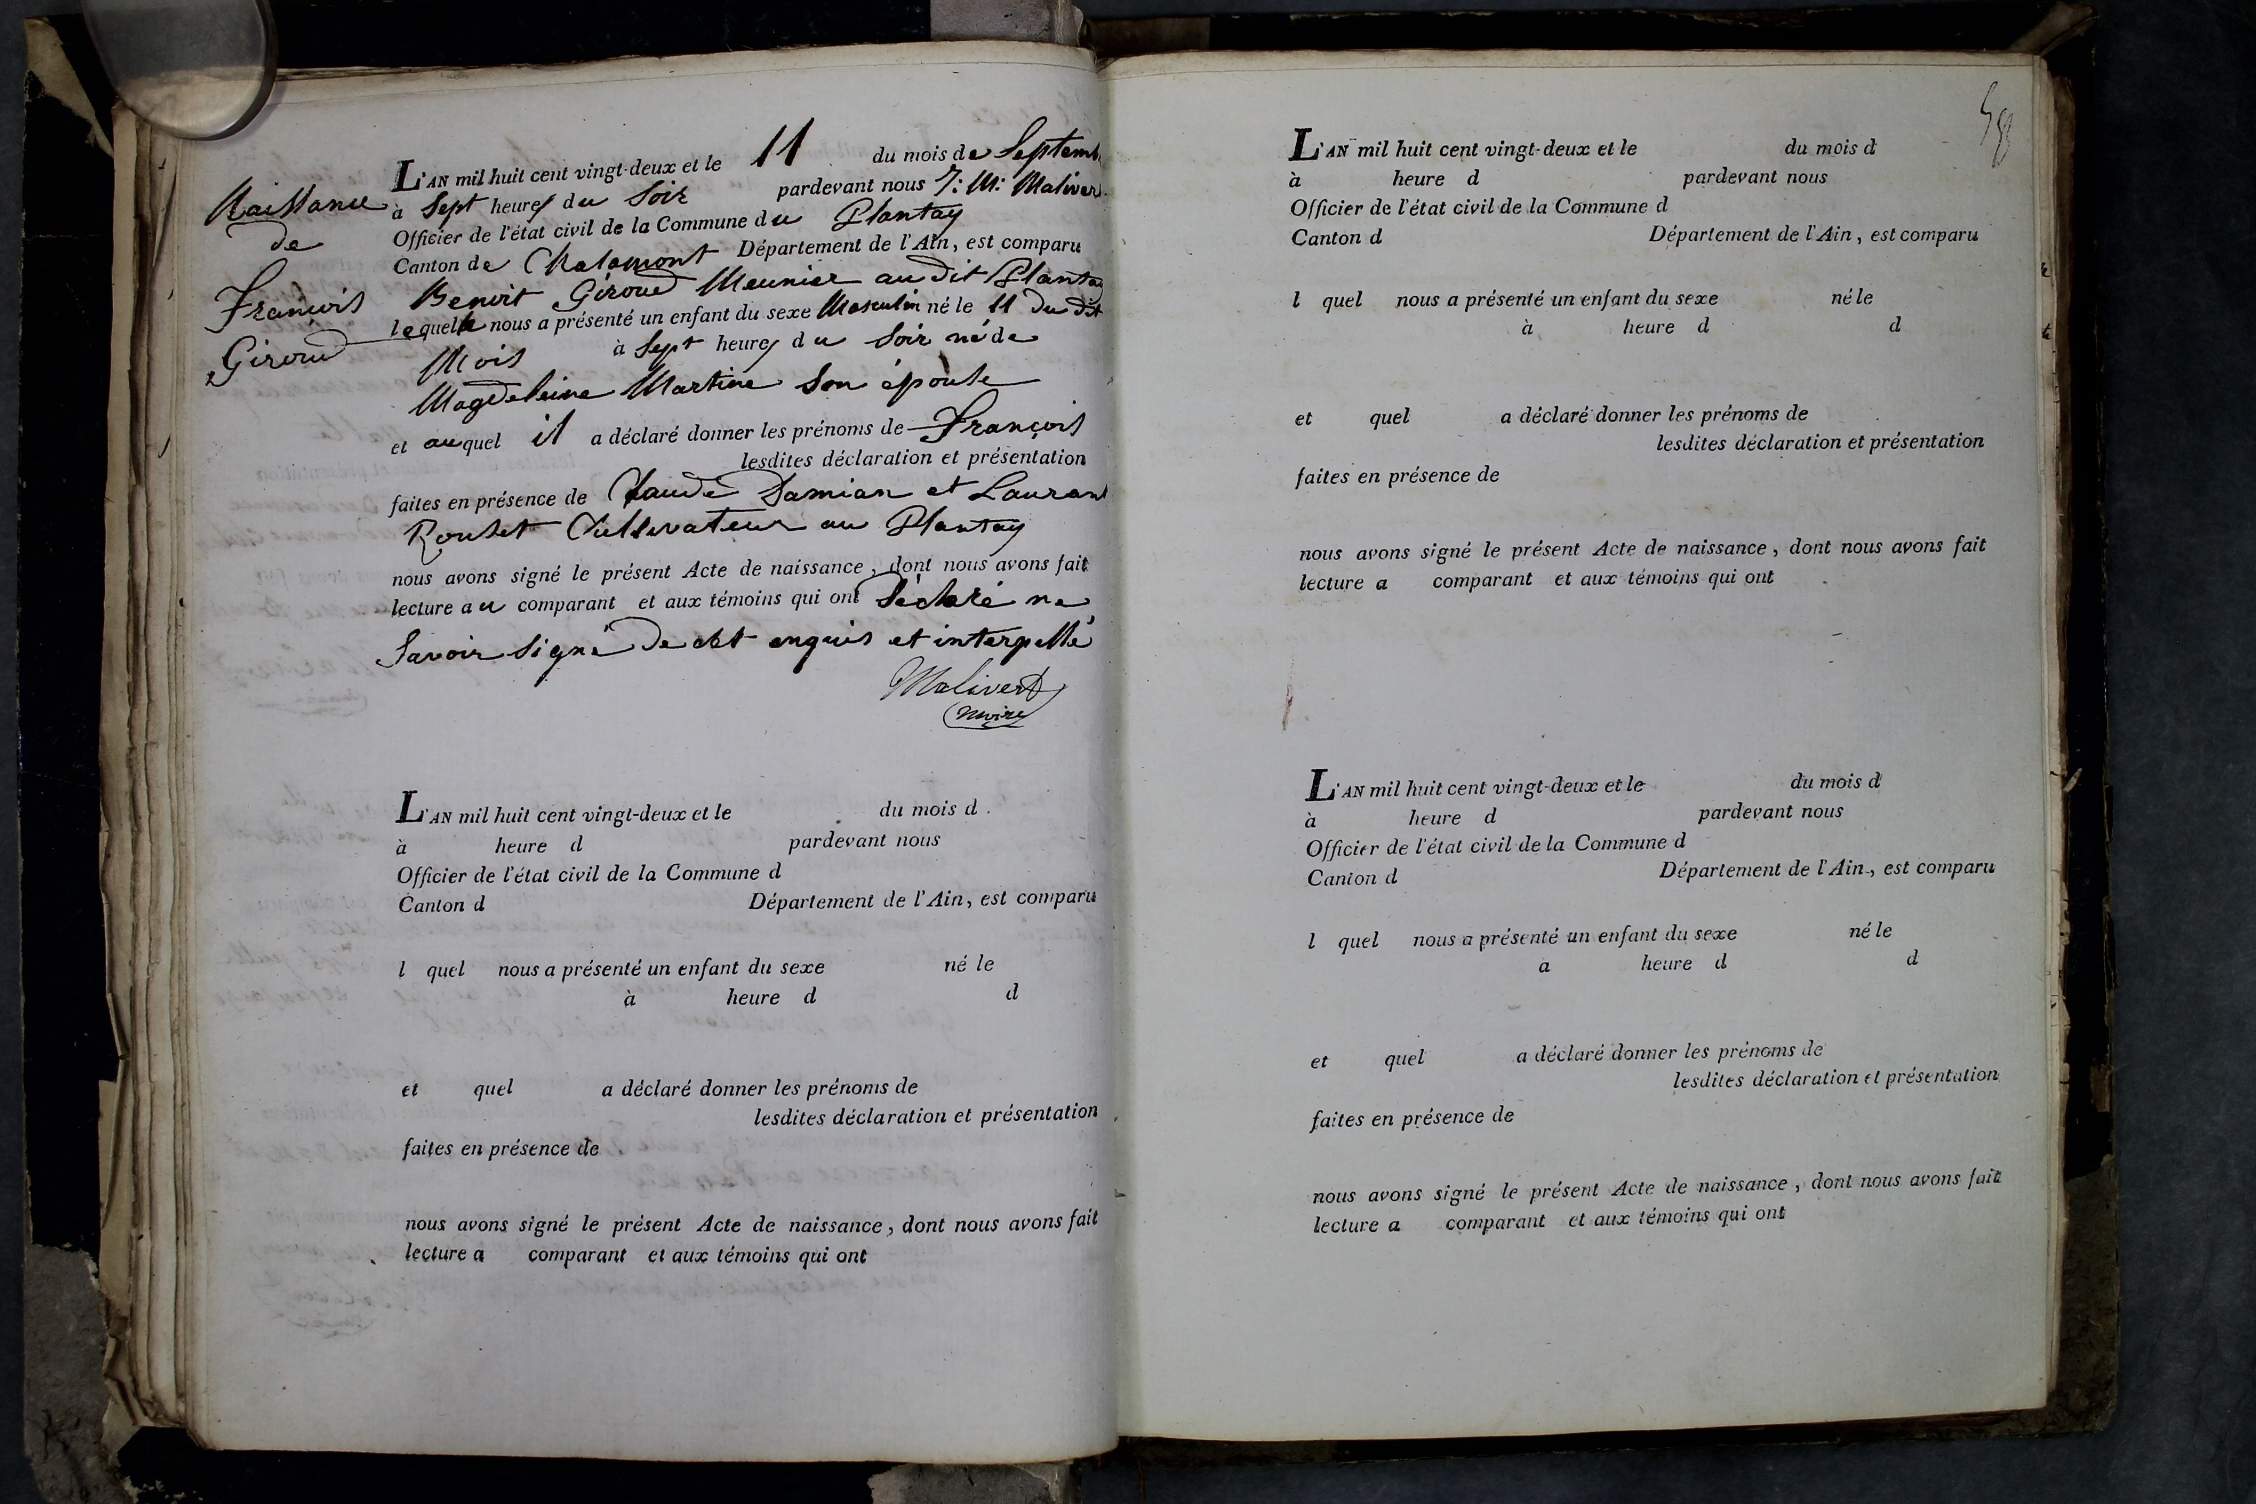 Naissance
de
François
Giroud
L'AN mil huit cent vingt-deux et le 11 du mois de Septemb
à Sept heures du Soir pardevant nous J: M: Maliver
Officier de l'état civil de la Commune du Plantay
Canton de Chalamont Département de l'Ain, est comparu
Benoit Giroud Meunier au dit Plantay
lequel nous a présenté un enfant du sexe Masculin né le 11 du dit
Mois à Sept heures du Soir né de
Magdeleine Martine Son épouse
et auquel il a déclaré donner les prénoms de François
lesdites déclaration et présentation
faites en présence de Claude Damian et Laurant
Rousset Cultivateur au Plantay
nous avons signé le présent Acte de naissance, dont nous avons fait
lecture au comparant et aux témoins qui ont déclaré ne
Savoir Signé de cet enquis et interpellé
Malivert
maire
L'AN mil huit cent vingt-deux et le du mois d
à heure d pardevant nous
Officier de l'état civil de la Commune d
Canton d Département de l'Ain, est comparu
l quel nous a présenté un enfant du sexe né le
à heure d d
et quel a déclaré donner les prénoms de
lesdites déclaration et présentation
faites en présence de
nous avons signé le présent Acte de naissance, dont nous avons fait
lecture a comparant et aux témoins qui ont
L'AN mil huit cent vingt-deux et le du mois d
à heure d pardevant nous
Officier de l'état civil de la Commune d
Canton d Département de l'Ain, est comparu
l quel nous a présenté un enfant du sexe né le
à heure d d
et quel a déclaré donner les prénoms de
lesdites déclaration et présentation
faites en présence de
nous avons signé le présent Acte de naissance, dont nous avons fait
lecture a comparant et aux témoins qui ont
L'AN mil huit cent vingt-deux et le du mois d
à heure d pardevant nous
Officier de l'état civil de la Commune d
Canton d Département de l'Ain, est comparu
l quel nous a présenté un enfant du sexe né le
a heure d d
et quel a déclaré donner les prénoms de
lesdites déclaration et présentation
faites en présence de
nous avons signé le présent Acte de naissance, dont nous avons fait
lecture a comparant et aux témoins qui ont